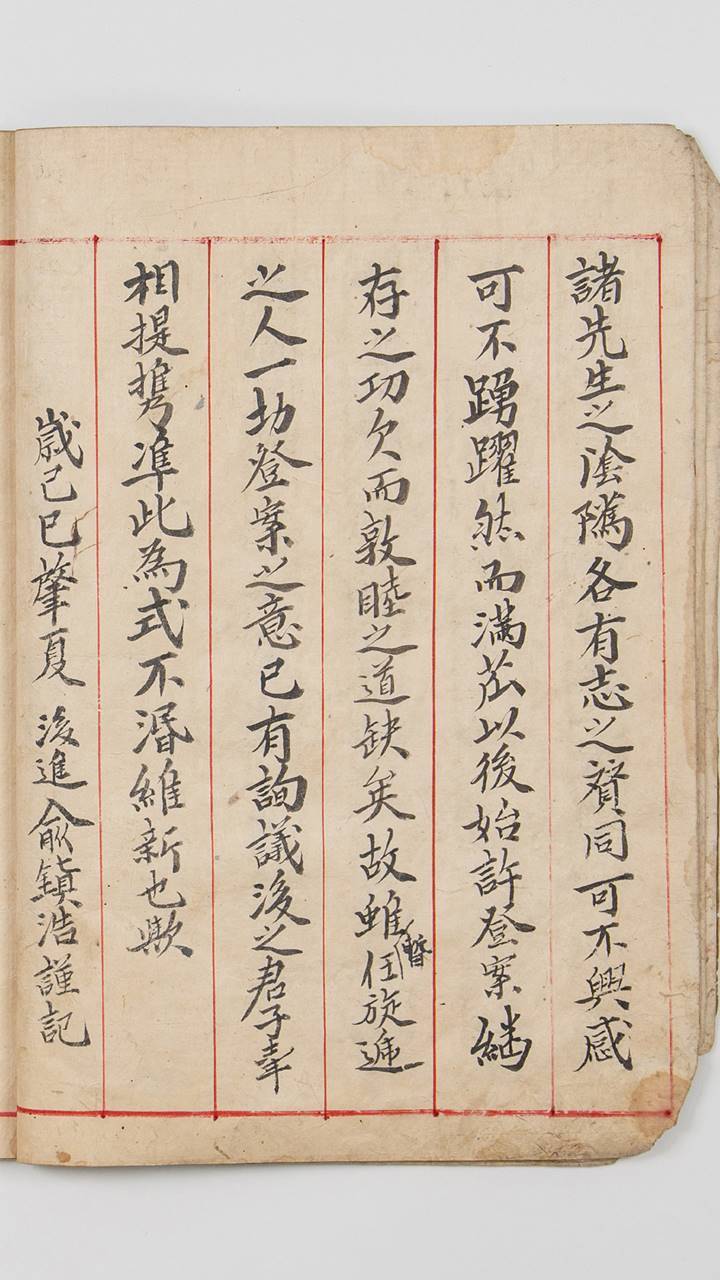 諸先生之陰隲各有志之贊同可不興感
可不踴躍然而滿瓜以後始許登案繼
存之功欠而敦睦之道缺矣故雖暫任旋遞
之人一切登案之意已有詢議後之君子幸
相提携準此為式不湣維新也歟
歲己巳肇夏 後進俞鎭浩謹記